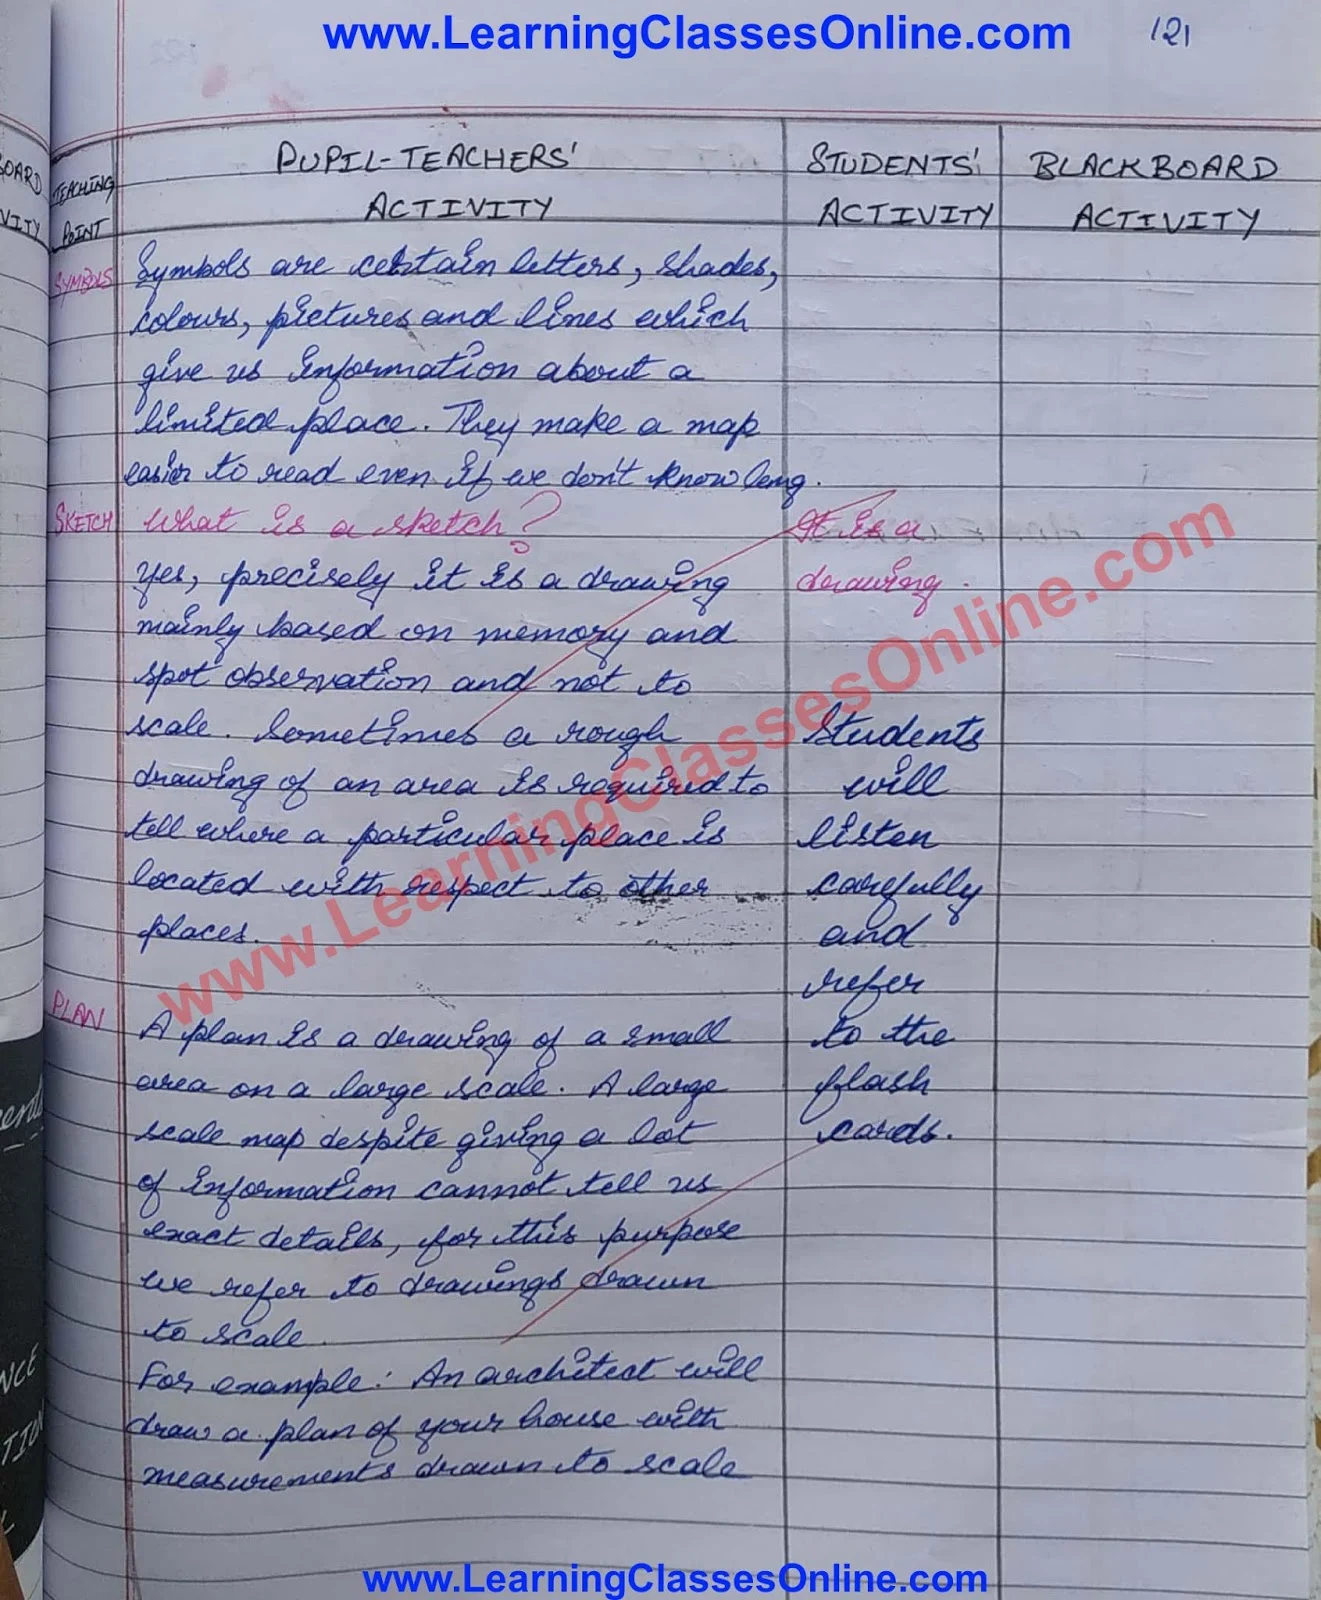 www.LearningClassesOnline.com
121
OARD
VITY
TEACHING
POINT
PUPIL-TEACHERS'
ACTIVITY
STUDENTS'
ACTIVITY
BLACKBOARD
ACTIVITY
SYMBOLS
Symbols are certain letters, shades,
colours, pictures and lines which
give us information about a
limited place. They make a map
easier to read even if we don't know lang.
SKETCH
What is a sketch?
It is a
drawing.
Yes, precisely it is a drawing
mainly based on memory and
spot observation and not to
scale. Sometimes a rough
drawing of an area is required to
tell where a particular place is
located with respect to other
places.
Students
will
listen
carefully
and
refer
to the
flash
cards.
PLAN
A plan is a drawing of a small
area on a large scale. A large
scale map despite giving a lot
of information cannot tell us
exact details, for this purpose
we refer to drawings drawn
to scale.
For example: An architect will
draw a plan of your house with
measurements drawn to scale
NCE
TION
www.LearningClassesOnline.com
www.LearningClassesOnline.com